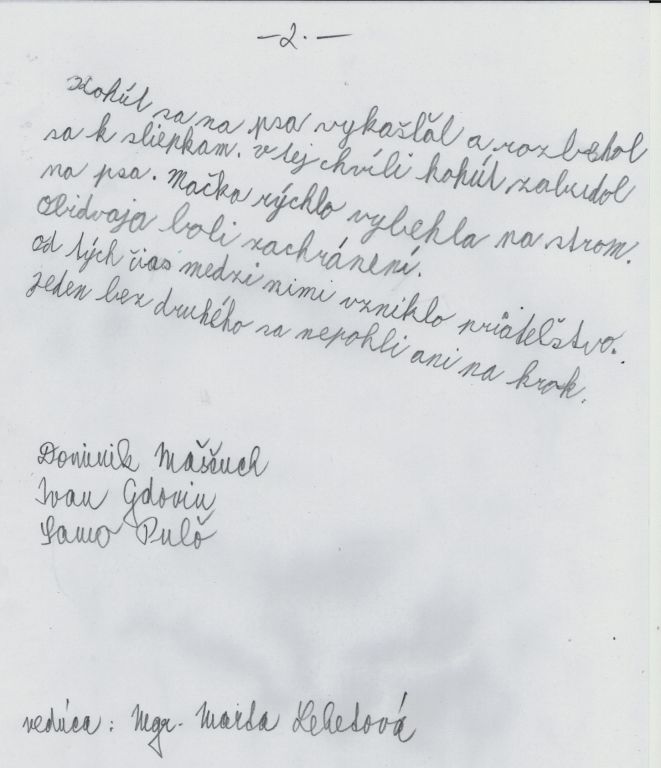 -2.-
Kohút sa na psa vykašľal a rozbehol
sa k sliepkam. V tej chvíli kohút zabudol
na psa. Mačka rýchlo vybehla na strom.
Obidvaja boli zachránení.
Od tých čias medzi nimi vzniklo priateľstvo.
Jeden bez druhého sa nepohli ani na krok.
Dominik Maščuch
Ivan Gdovin
Samo Pulo
vedúca: Mgr. Marta